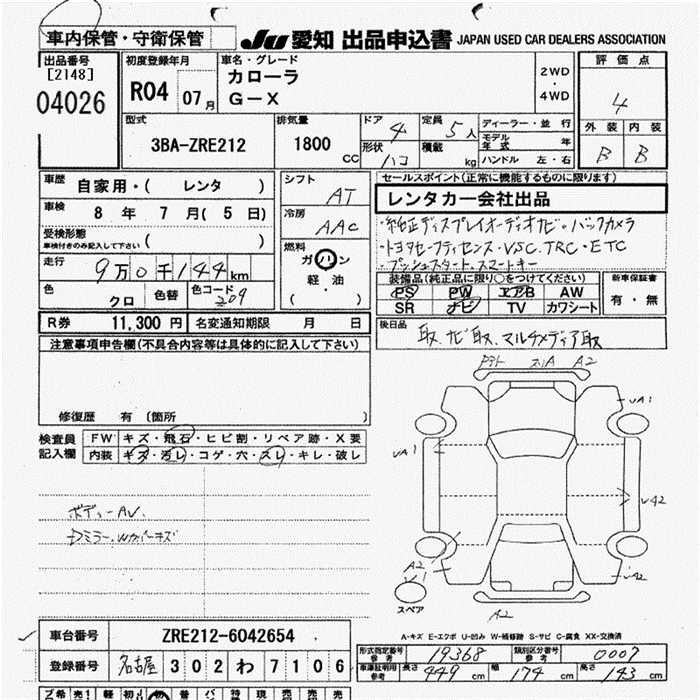 車内保管・守衛保管
JU 愛知 出品申込書 JAPAN USED CAR DEALERS ASSOCIATION
出品番号
[2148]
04026
初度登録年月
R04 07月
車名・グレード
カローラ
G-X
2WD
4WD
評価点
4
外装 内装
B B
型式
3BA-ZRE212
排気量
1800 CC
ドア 4
形状 ハコ
定員 5人
積載 kg
ディーラー・並行
モデル年式 年
ハンドル 左・右
車歴 自家用・( レンタ )
車検 8年 7月( 5日)
受検形態
車検付きのみ記入して下さい ( )
走行
9万0千144km
色 クロ 色替 色コード 209
シフト AT
冷房 AAC
燃料
ガソリン
軽油
( )
セールスポイント(正常に機能するものに限ります)
レンタカー会社出品
・純正ディスプレイオーディオナビ・バックカメラ
・トヨタセーフティセンス・VSC.TRC・ETC
・プッシュスタート.スマートキー
装備品(純正品に限り○をつけてください)
PS PW エアB AW
SR ナビ TV カワシート
新車保証書
有・無
R券 11,300円 名変通知期限 月 日
後日品
取.ナビ取.マルチメディア取
注意事項申告欄(不具合内容等は具体的に記入して下さい)
修復歴 有 〔箇所 〕
検査員記入欄
FW キズ・飛石・ヒビ割・リペア跡・X要
内装 キズ・汚レ・コゲ・穴・スレ・キレ・破レ
ボディーAU.
A2
UA1
UA1
A2
A2
スペア
A-キズ E-エクボ U-凹み W-補修跡 S-サビ C-腐食 XX-交換済
車台番号 ZRE212-6042654
登録番号 名古屋 302 わ 7106
形式指定番号 参考 19368
類別区分番号 参考 0007
車庫証明用 参考 長さ 449cm 幅 174cm 高さ 143cm